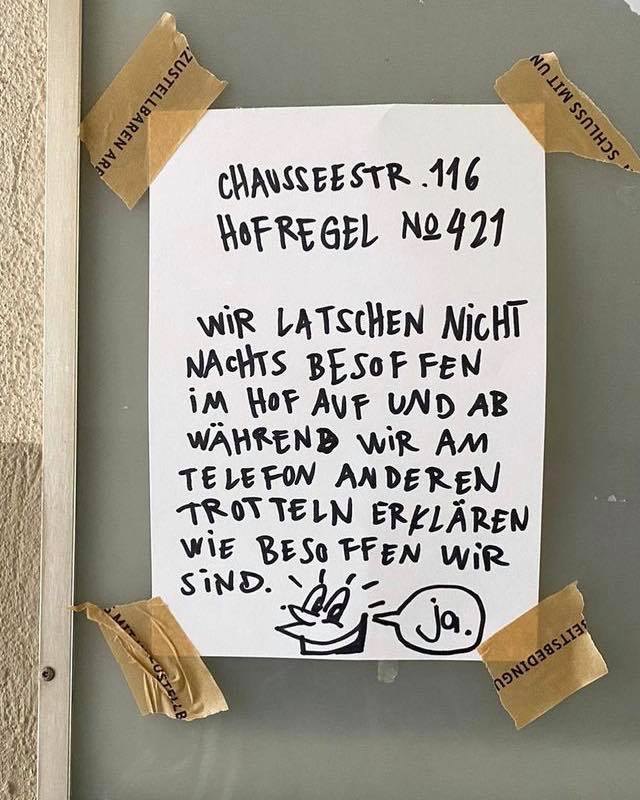 ZUSTELLBAREN ARB
SCHLUSS MIT UN
CHAUSSEESTR. 116
HOFREGEL No 421
WIR LATSCHEN NICHT
NACHTS BESOFFEN
IM HOF AUF UND AB
WÄHREND WIR AM
TELEFON ANDEREN
TROTTELN ERKLÄREN
WIE BESOFFEN WIR
SIND.
ja.
S MIT
ZUSTELLB
BEITSBEDINGU